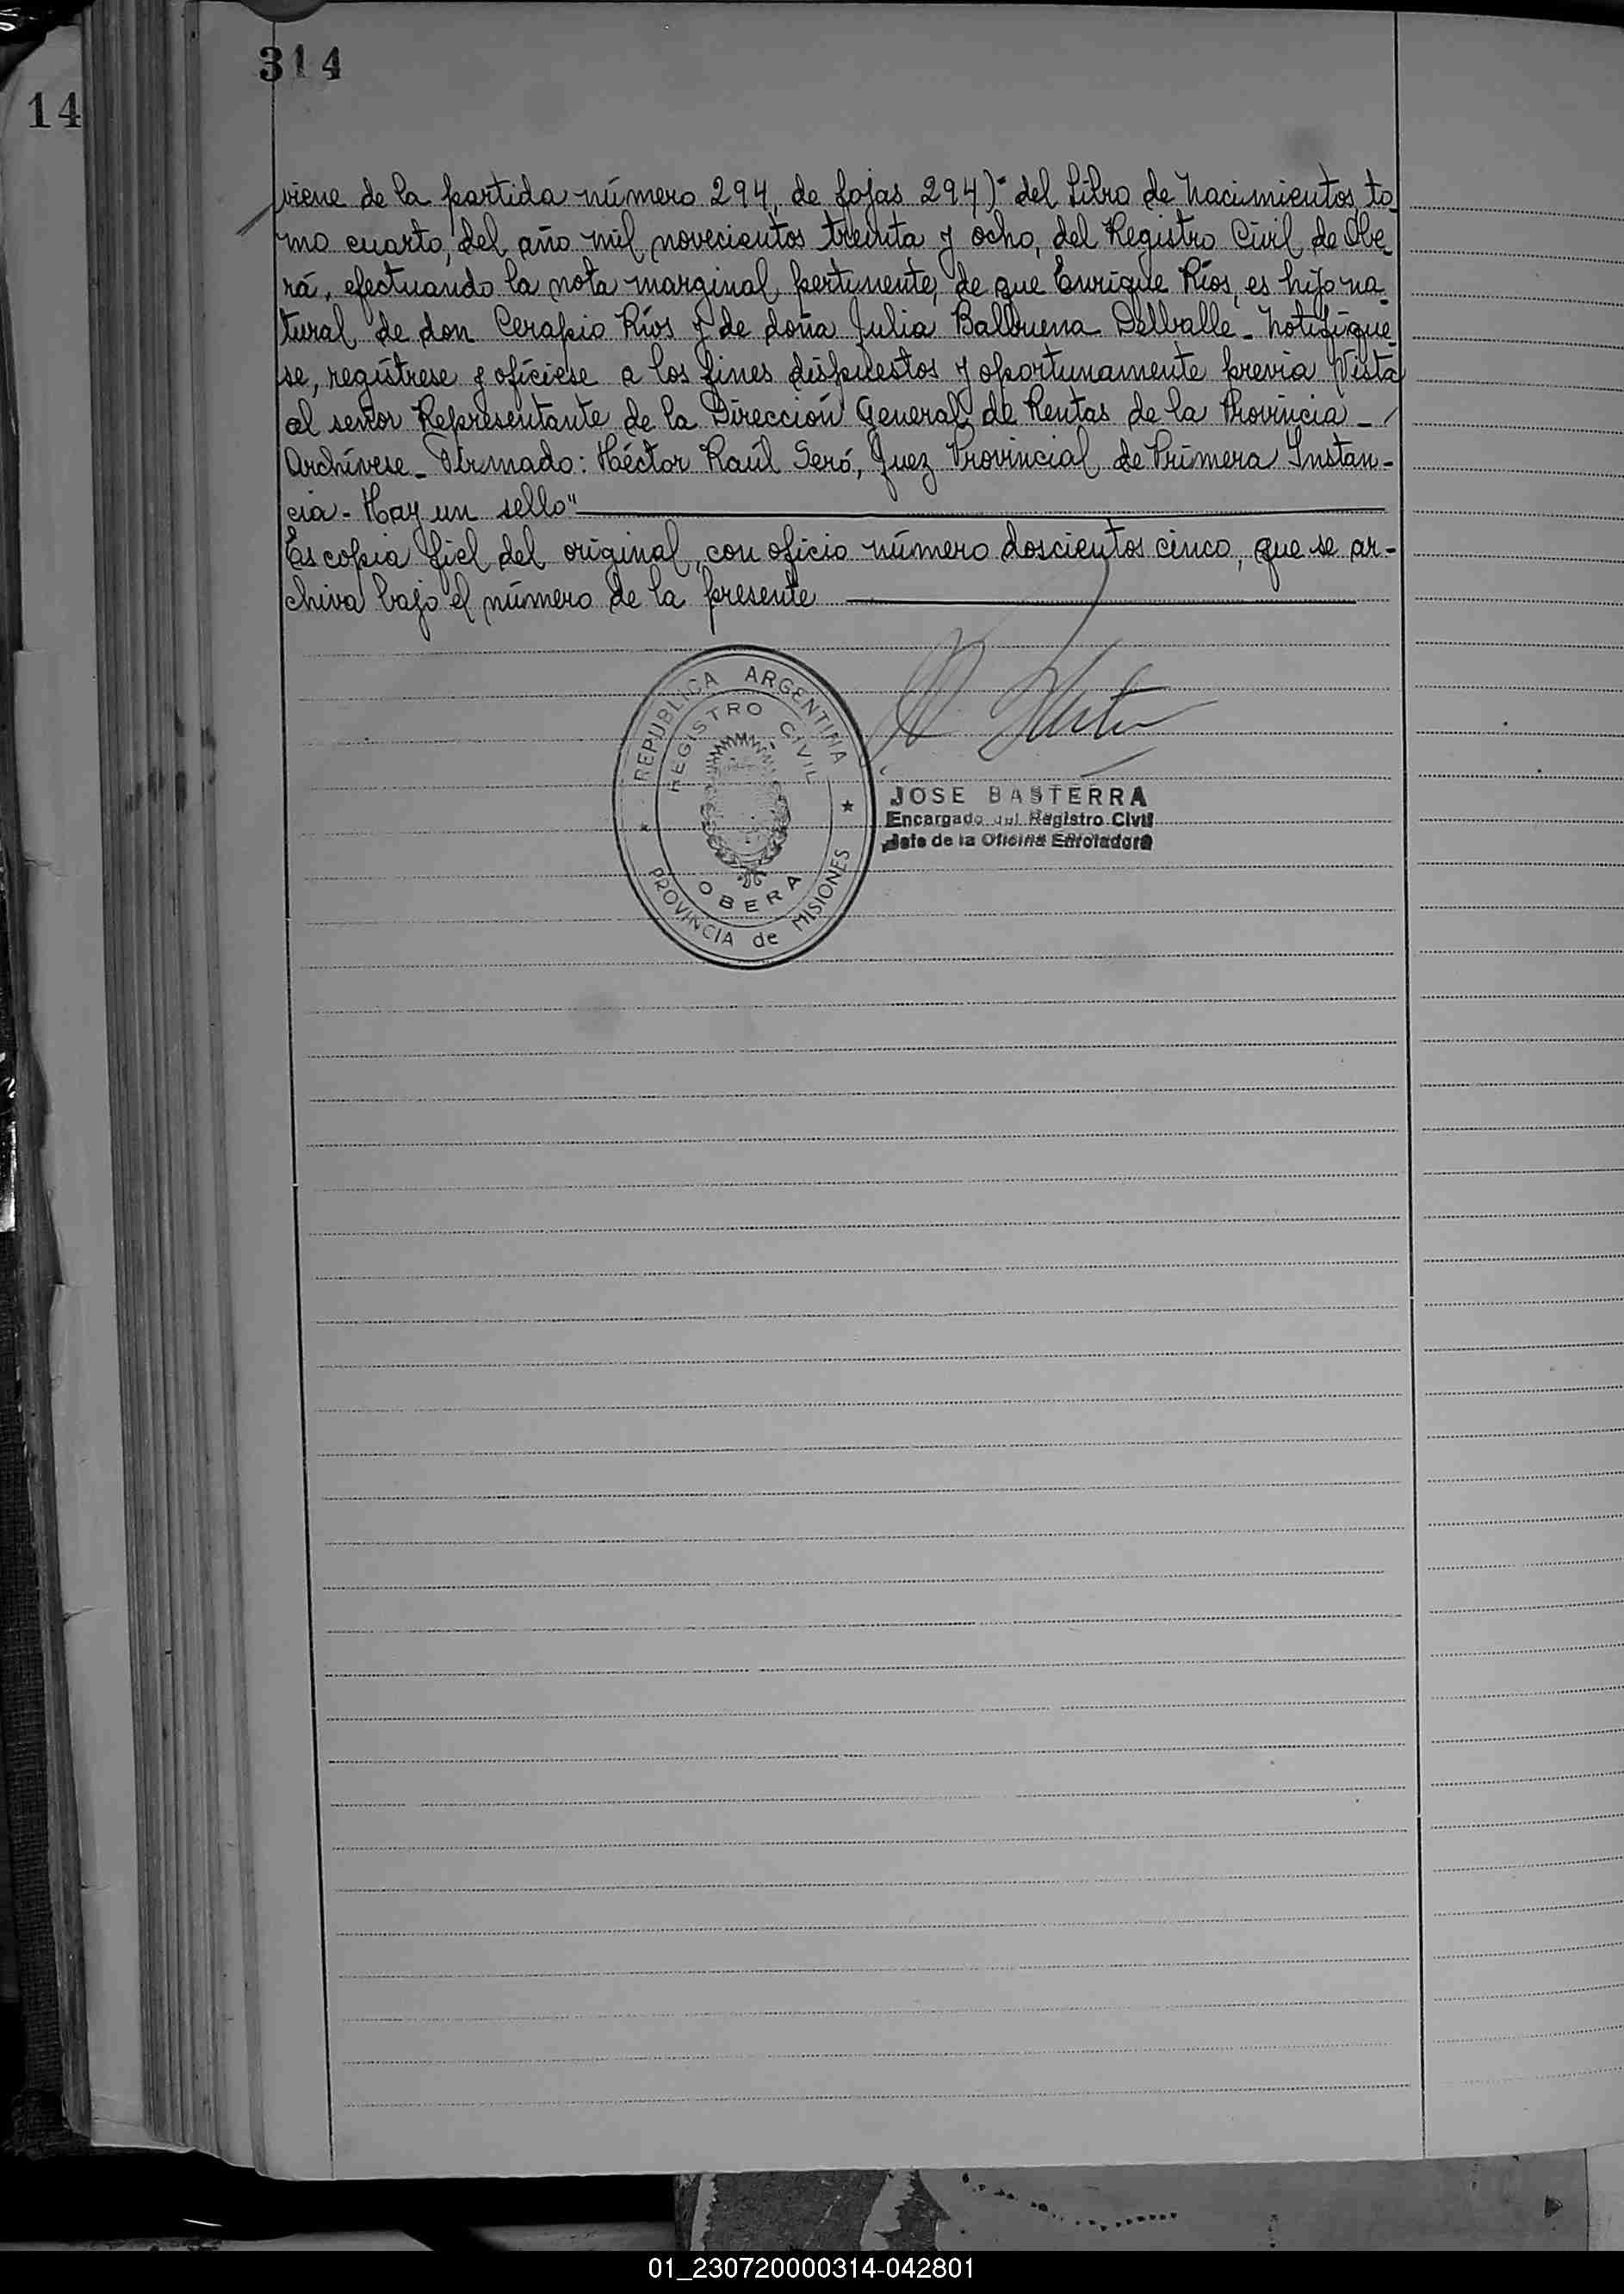 314
14
viene de la partida número 294, de fojas 294) del Libro de Nacimientos to-
mo cuarto, del año mil novecientos treinta y ocho, del Registro Civil de Obe-
rá, efectuando la nota marginal pertinente, de que Enrique Ríos, es hijo na-
tural de don Cerapio Ríos y de doña Julia Balbuena Delvalle - Notifíque-
se, regístrese y ofíciese a los fines dispuestos y oportunamente previa Vista
al señor Representante de la Dirección General de Rentas de la Provincia -
Archívese - Firmado: Héctor Raúl Seró, Juez Provincial de Primera Instan-
cia - Hay un sello"
Es copia fiel del original, con oficio número doscientos cinco, que se ar-
chiva bajo el número de la presente
REPUBLICA ARGENTINA
REGISTRO CIVIL
OBERA
PROVINCIA de MISIONES
JOSE BASTERRA
Encargado del Registro Civil
Jefe de la Oficina Enroladora
01_230720000314-042801